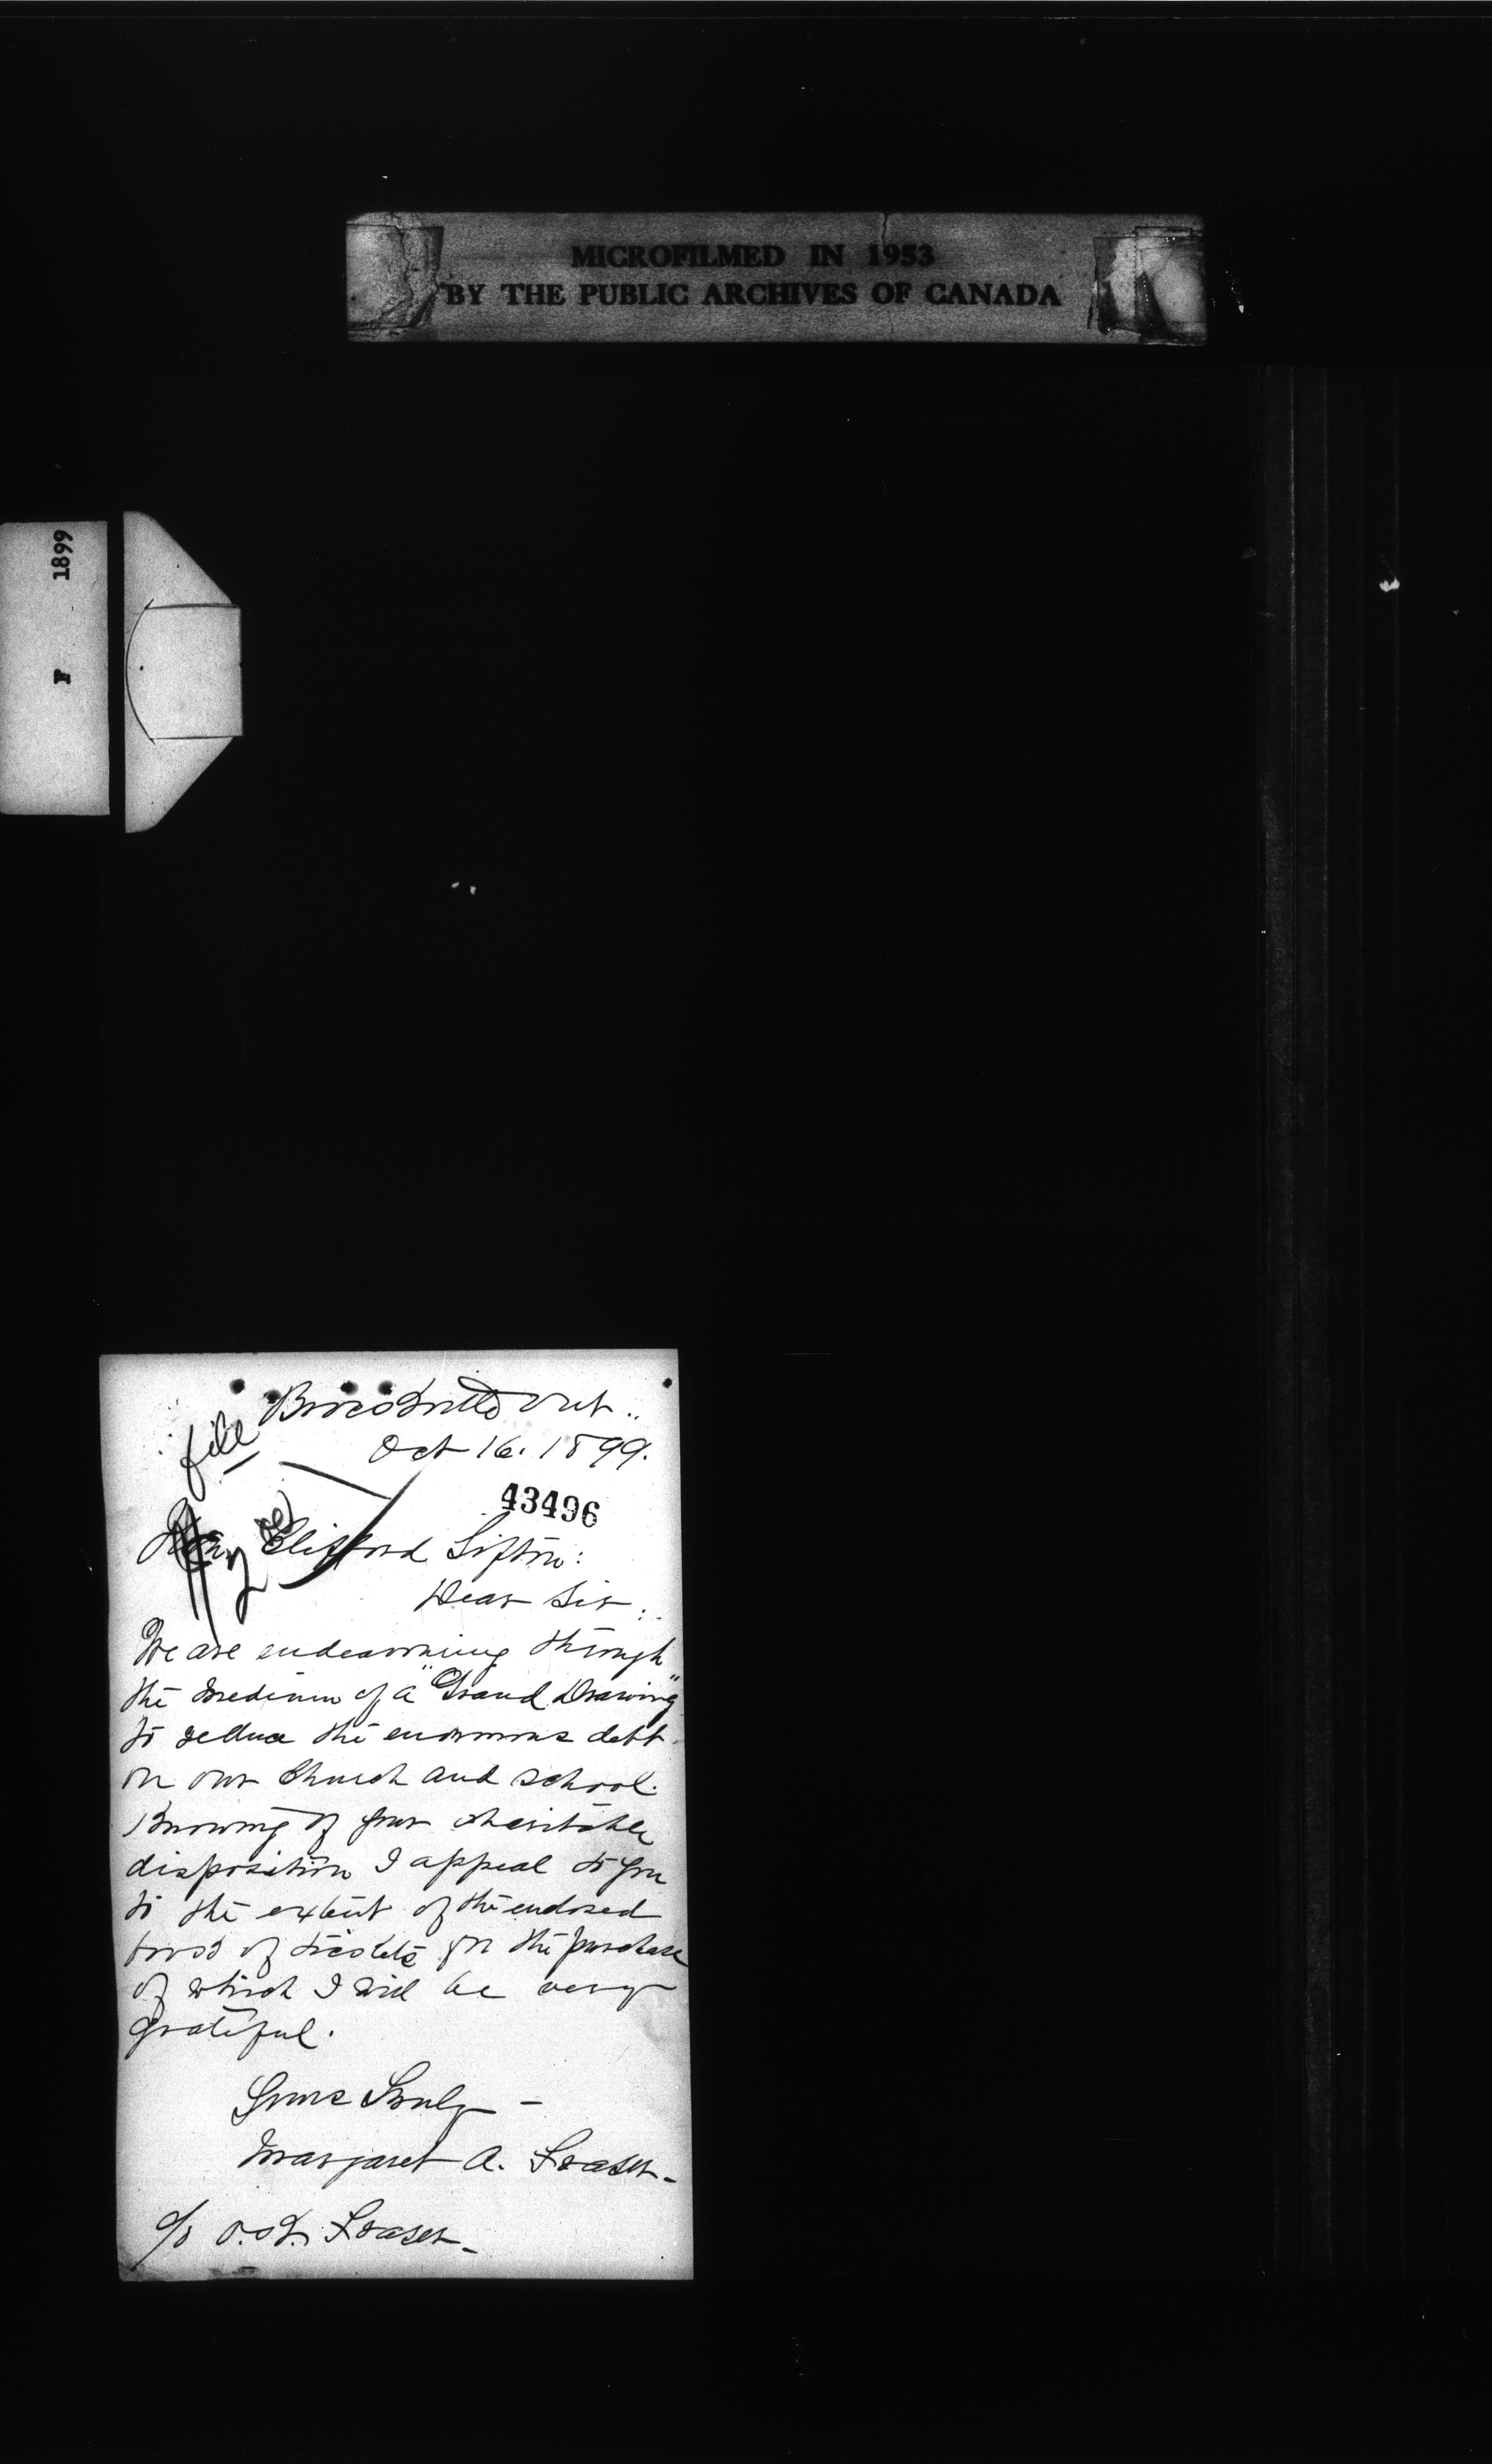 MICROFILMED IN 1953
BY THE PUBLIC ARCHIVES OF CANADA
F 1899
Brockville Ont.
Oct 16. 1899.
file
43496
Hon. Clifford Sifton:
Dear Sir:
We are endeavoring through
the medium of a "Grand Drawing"
to reduce the enormous debt
on our Church and school.
Knowing of your charitable
disposition I appeal to you
to the extent of the enclosed
book of tickets for the purchase
of which I will be very
grateful.
Yours Truly -
Margaret A. Fraser -
c/o O. K. Fraser -